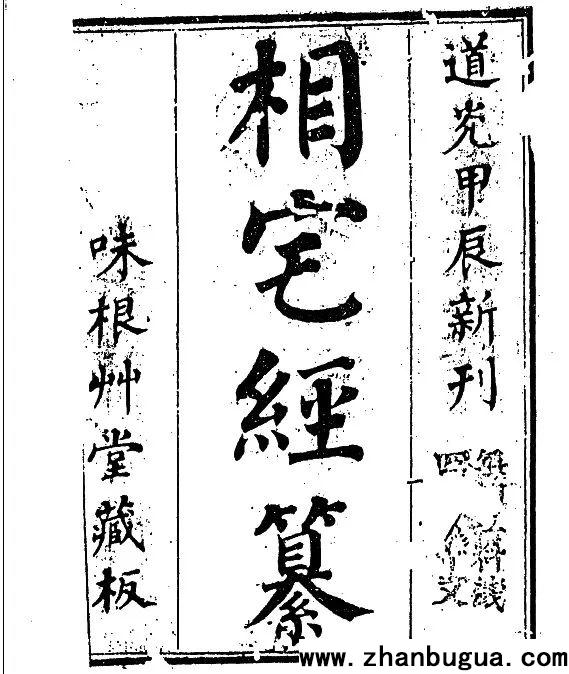 道光甲辰新刊
相宅經纂
味根艸堂藏板
www.zhanbugua.com